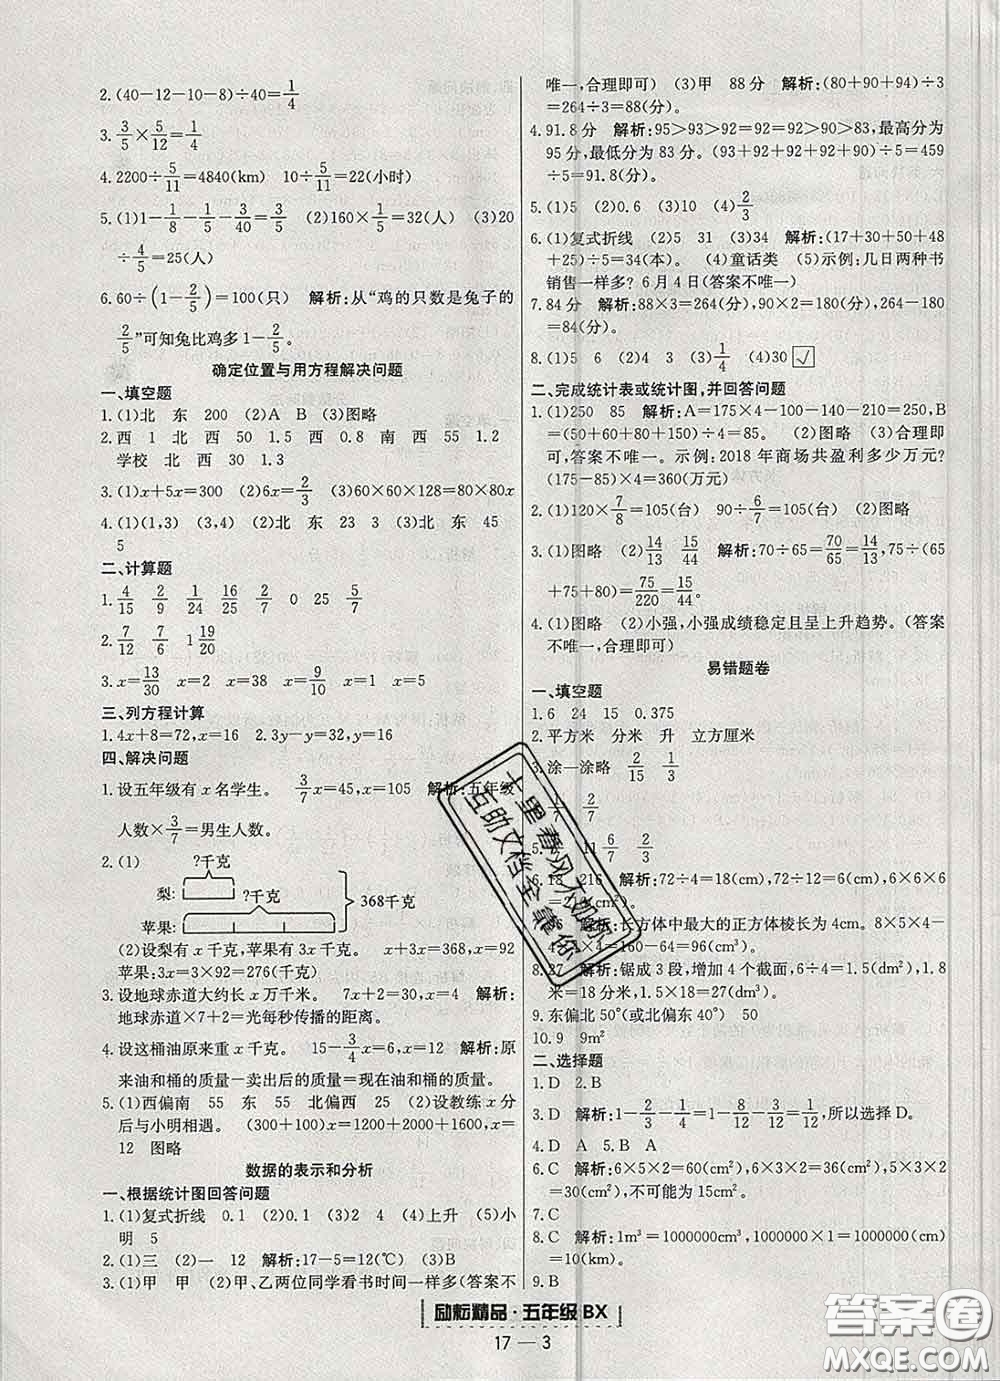 2.(40－12－10－8)÷40＝1/4
3. 3/5×5/12＝1/4
4.2200÷5/11＝4840(km)　10÷5/11＝22(小时)
5.(1)1－1/8－1/5－3/40＝3/5　(2)160×1/5＝32(人)　(3)20
÷4/5＝25(人)
6.60÷(1－2/5)＝100(只)　解析:从“鸡的只数是兔子的
2/5”可知兔比鸡多1－2/5。
确定位置与用方程解决问题
一、填空题
1.(1)北　东　200　(2)A　B　(3)图略
2.西　1　北　西　50　1.5　西　0.8　南　西　55　1.2
学校　北　西　50　1.3
3.(1)x＋5x＝300　(2)6x＝2/3　(3)60×60×128＝80×80x
4.(1)(1,3)　(3,4)　(2)北　东　23　3　(3)北　东　45
5
二、计算题
1. 4/15　2/9　1/24　16/25　2/7　0　25　5/7
2. 7/12　7/6　1 19/20
3.x＝13/30　x＝2　x＝38　x＝9/10　x＝1　x＝5
三、列方程计算
1.4x＋8＝72,x＝16　2.3y－y＝32,y＝16
四、解决问题
1.设五年级有x名学生。　3/7x＝45,x＝105　解析:五年级
人数×3/7＝男生人数。
2.(1)　?千克
梨:　?千克　368千克
苹果:
(2)设梨有x千克,苹果有3x千克　x＋3x＝368,x＝92
苹果:3x＝3×92＝276(千克)
3.设地球赤道大约长x万千米。　7x＋2＝30,x＝4　解析:
地球赤道×7＋2＝光每秒传播的距离。
4.设这桶油原来重x千克。　15－3/4x＝6,x＝12　解析:原
来油和桶的质量－卖出后的质量＝现在油和桶的质量。
5.(1)西偏南　55　东　55　北偏西　25　(2)设教练x分
后与小明相遇。　(300＋100)x＝1200＋2000＋1600,x＝
12　图略
数据的表示和分析
一、根据统计图回答问题
1.(1)复式折线　0.1　(2)0.1　(3)2　4　(4)上升　(5)小
明　5
2.(1)三　(2)一　12　解析:17－5＝12(℃)　(3)B
3.(1)甲　甲　(2)甲、乙两位同学看书时间一样多(答案不
唯一,合理即可)　(3)甲　88分　解析:(80＋90＋94)÷3
＝264÷3＝88(分)。
4.91.8分　解析:95＞93＞92＝92＝92＞90＞83,最高分为
95分,最低分为83分。(93＋92＋92＋92＋90)÷5＝459
÷5＝91.8(分)。
5.(1)5　(2)0.6　(3)10　(4)2/3
6.(1)复式折线　(2)5　31　(3)34　解析:(17＋30＋50＋48
＋25)÷5＝34(本)。　(4)童话类　(5)示例:几日两种书
销售一样多?　6月4日(答案不唯一)
7.84分　解析:88×3＝264(分),90×2＝180(分),264－180
＝84(分)。
8.(1)5　6　(2)4　3　(3)1/4　(4)30　√
二、完成统计表或统计图,并回答问题
1.(1)250　85　解析:A＝175×4－100－140－210＝250,B
＝(50＋60＋80＋150)÷4＝85。　(2)图略　(3)合理即
可,答案不唯一。示例:2018年商场共盈利多少万元?
(175－85)×4＝360(万元)
2.(1)120×7/8＝105(台)　90÷6/7＝105(台)　(2)图略
3.(1)图略　(2)14/13　15/44　解析:70÷65＝70/65＝14/13,75÷(65
＋75＋80)＝75/220＝15/44。
4.(1)图略　(2)小强,小强成绩稳定且呈上升趋势。(答案
不唯一,合理即可)
易错题卷
一、填空题
1.6　24　15　0.375
2.平方米　分米　升　立方厘米
3.涂一涂略　2/15　1/4
1/7　2/7
11　6/7　2/3
6.18　216　解析:72÷4＝18(cm),72÷12＝6(cm),6×6×6
＝216(cm³)
解析:长方体中最大的正方体棱长为4cm。8×5×4－
4×4×4＝160－64＝96(cm³)。
8.27　解析:锯成3段,增加4个截面,6÷4＝1.5(dm²),1.8
米＝18分米,1.5×18＝27(dm³)。
9.东偏北50°(或北偏东40°)　50
10.9　9m²
二、选择题
1.D　2.B
3.D　解析:1－2/3－1/4＝1－8/12－3/12＝1/12,所以选择D。
4.D　A　5.B　A
6.C　解析:6×5×2＝60(cm²),6×3×2＝36(cm²),5×3×2
＝30(cm²),不可能为15cm²。
7.C
8.C　解析:1m³＝1000000cm³,1000000×1＝1000000(cm)
＝10(km)。
9.B
十里春风不如你
互助文档全靠你
励耘精品·五年级 BX
17－3
答案圈
MXQE.COM